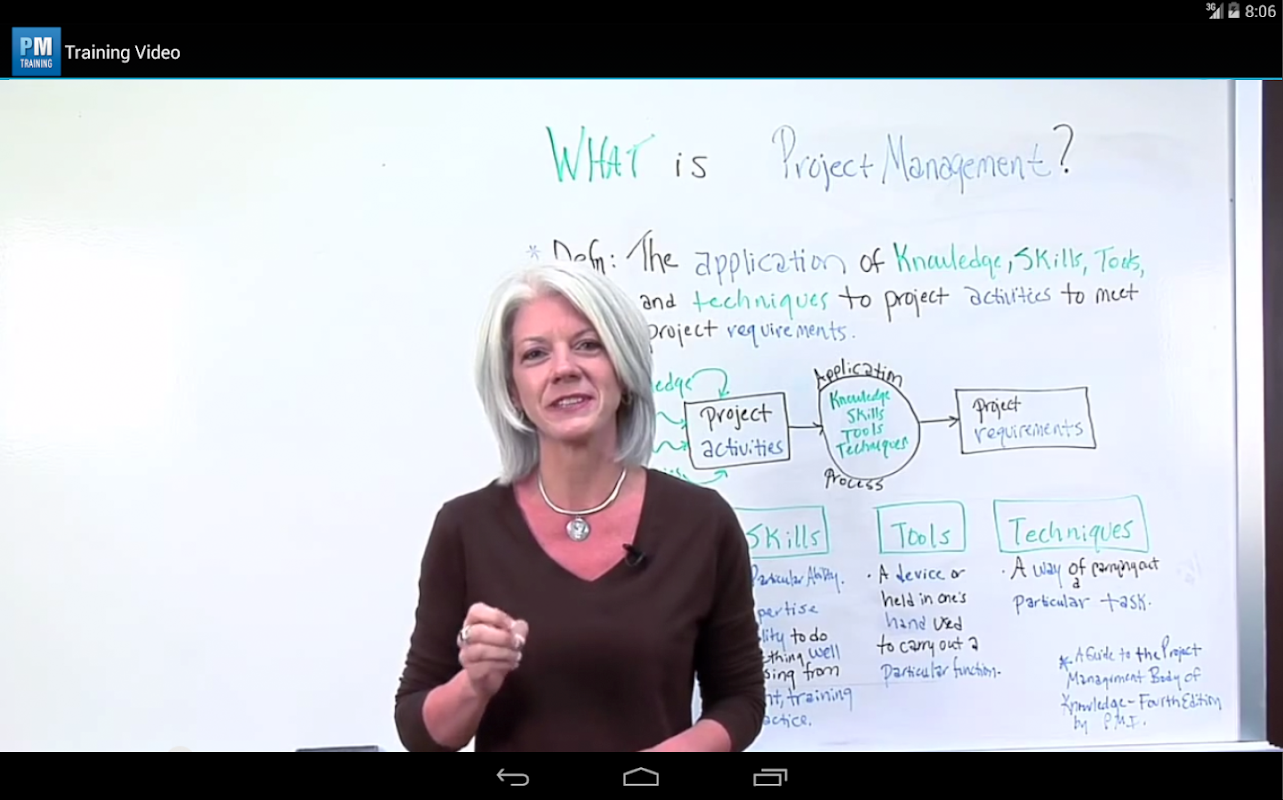 3G 8:06
PM
TRAINING
Training Video
WHAT is Project Management?
* Defn: The application of Knowledge, Skills, Tools,
and techniques to project activities to meet
project requirements.
edge
Project
activities
Application
Knowledge
Skills
Tools
Techniques
Process
project
requirements
Skills
Particular Ability.
pertise
lity to do
thing well
sing from
nt, training
actice.
Tools
• A device or
held in one's
hand used
to carry out a
Particular function.
Techniques
• A way of carrying out
a
particular task.
* A Guide to the Project
Management Body of
Knowledge - Fourth Edition
by P.M.I.